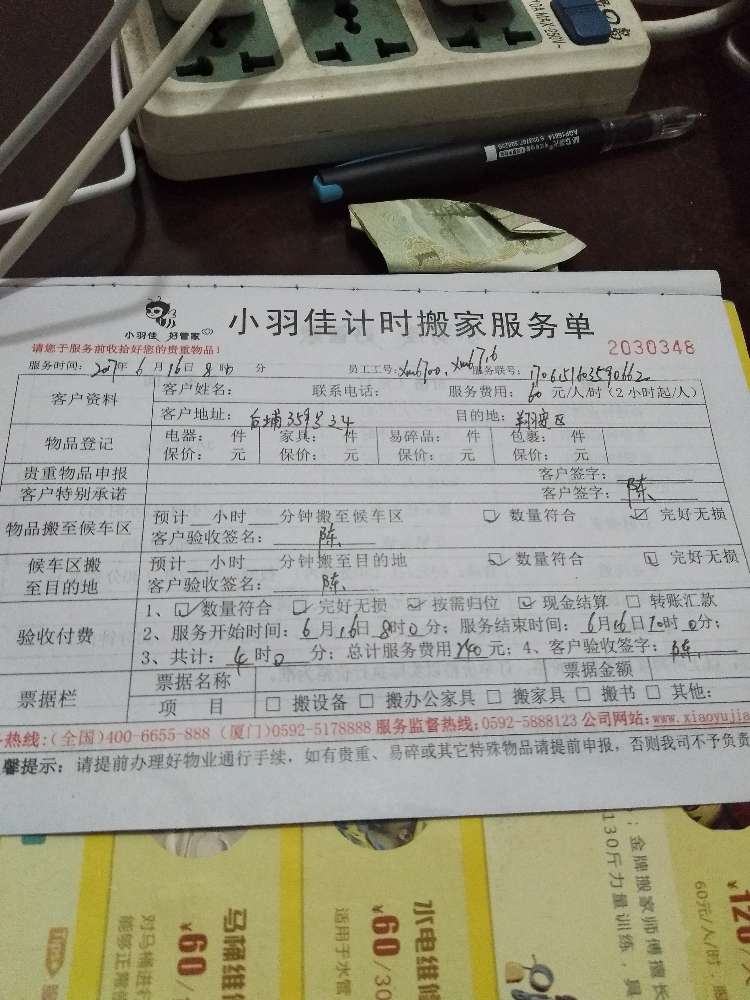 小羽佳 好管家
小羽佳计时搬家服务单
2030348
请您于服务前收拾好您的贵重物品！
服务时间：2017年6月16日8时 分 员工工号： 服务联号：
客户资料 客户姓名： 联系电话： 服务费用：60元/人/时（2小时起/人）
客户地址：后埔359号 目的地：翔安区
物品登记 电器： 件 家具： 件 易碎品： 件 包裹： 件
保价： 元 保价： 元 保价： 元 保价： 元
贵重物品申报 客户签字：
客户特别承诺 客户签字：陈
物品搬至候车区 预计__小时__分钟搬至候车区 ☑数量符合 ☑完好无损
客户验收签名：陈
候车区搬至目的地 预计__小时__分钟搬至目的地 ☑数量符合 ☑完好无损
客户验收签名：陈
验收付费 1、☑数量符合 ☑完好无损 ☑按需归位 ☑现金结算 □转账汇款
2、服务开始时间：6月16日8时0分；服务结束时间：6月16日10时0分；
3、共计：4时0分；总计服务费用240元；4、客户验收签字：陈
票据栏 票据名称 票据金额
项 目 □搬设备 □搬办公家具 □搬家具 □搬书 □其他：
热线：(全国)400-6655-888 (厦门)0592-5178888 服务监督热线：0592-5888123 公司网站：www.xiaoyujia
馨提示：请提前办理好物业通行手续，如有贵重、易碎或其它特殊物品请提前申报，否则我司不予负责
马桶维修
¥60/
对马桶进行
能够正常
水电维修
¥60/30
适用于水管
金牌搬家师傅擅长
130斤力量训练，具
¥120/
60元/人/时；